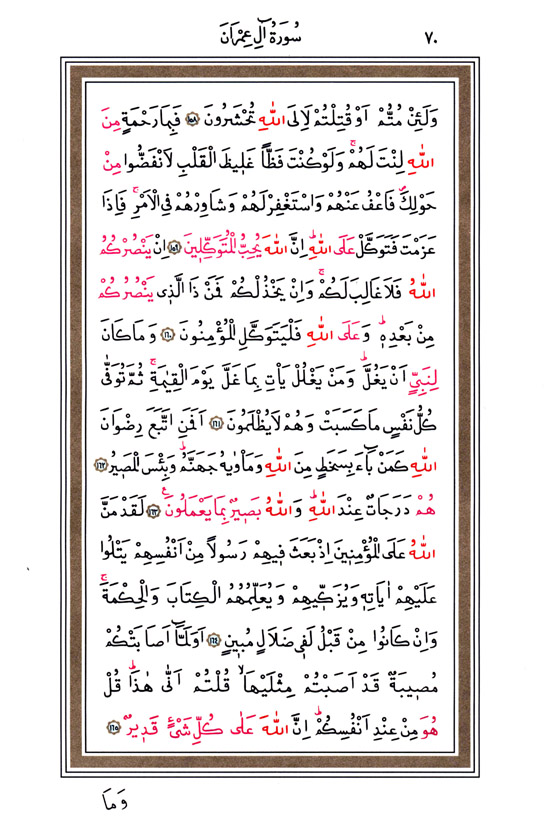 سُورَةُ اٰلِ عِمْرَانَ ٧٠
وَلَئِنْ مُتُّمْ اَوْ قُتِلْتُمْ لَاِلَى اللّٰهِ تُحْشَرُونَ ﴿١٥٨﴾ فَبِمَا رَحْمَةٍ مِنَ
اللّٰهِ لِنْتَ لَهُمْۚ وَلَوْ كُنْتَ فَظًّا غَلِيظَ الْقَلْبِ لَانْفَضُّوا مِنْ
حَوْلِكَۖ فَاعْفُ عَنْهُمْ وَاسْتَغْفِرْ لَهُمْ وَشَاوِرْهُمْ فِي الْاَمْرِۚ فَاِذَا
عَزَمْتَ فَتَوَكَّلْ عَلَى اللّٰهِۜ اِنَّ اللّٰهَ يُحِبُّ الْمُتَوَكِّلِينَ ﴿١٥٩﴾ اِنْ يَنْصُرْكُمُ
اللّٰهُ فَلَا غَالِبَ لَكُمْۚ وَاِنْ يَخْذُلْكُمْ فَمَنْ ذَا الَّذِي يَنْصُرُكُمْ
مِنْ بَعْدِهِۜ وَعَلَى اللّٰهِ فَلْيَتَوَكَّلِ الْمُؤْمِنُونَ ﴿١٦٠﴾ وَمَا كَانَ
لِنَبِيٍّ اَنْ يَغُلَّۜ وَمَنْ يَغْلُلْ يَأْتِ بِمَا غَلَّ يَوْمَ الْقِيٰمَةِۚ ثُمَّ تُوَفّٰى
كُلُّ نَفْسٍ مَا كَسَبَتْ وَهُمْ لَا يُظْلَمُونَ ﴿١٦١﴾ اَفَمَنِ اتَّبَعَ رِضْوَانَ
اللّٰهِ كَمَنْ بَٓاءَ بِسَخَطٍ مِنَ اللّٰهِ وَمَأْوٰيهُ جَهَنَّمُۜ وَبِئْسَ الْمَصِيرُ ﴿١٦٢﴾
هُمْ دَرَجَاتٌ عِنْدَ اللّٰهِۜ وَاللّٰهُ بَصِيرٌ بِمَا يَعْمَلُونَ ﴿١٦٣﴾ لَقَدْ مَنَّ
اللّٰهُ عَلَى الْمُؤْمِنِينَ اِذْ بَعَثَ فِيهِمْ رَسُولًا مِنْ اَنْفُسِهِمْ يَتْلُوا
عَلَيْهِمْ اٰيَاتِهِ وَيُزَكِّيهِمْ وَيُعَلِّمُهُمُ الْكِتَابَ وَالْحِكْمَةَۚ
وَاِنْ كَانُوا مِنْ قَبْلُ لَفِي ضَلَالٍ مُبِينٍ ﴿١٦٤﴾ اَوَلَمَّٓا اَصَابَتْكُمْ
مُصِيبَةٌ قَدْ اَصَبْتُمْ مِثْلَيْهَاۙ قُلْتُمْ اَنّٰى هٰذَاۜ قُلْ
هُوَ مِنْ عِنْدِ اَنْفُسِكُمْۜ اِنَّ اللّٰهَ عَلٰى كُلِّ شَيْءٍ قَدِيرٌ ﴿١٦٥﴾
وَمَا